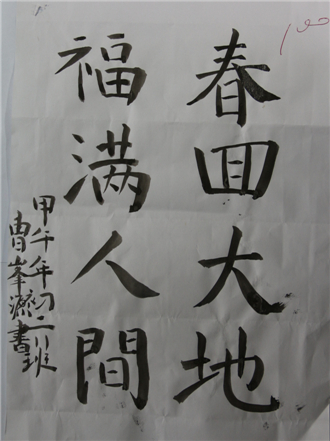 春回大地
福满人间
甲午年初二八班
曹峯瀠書
100